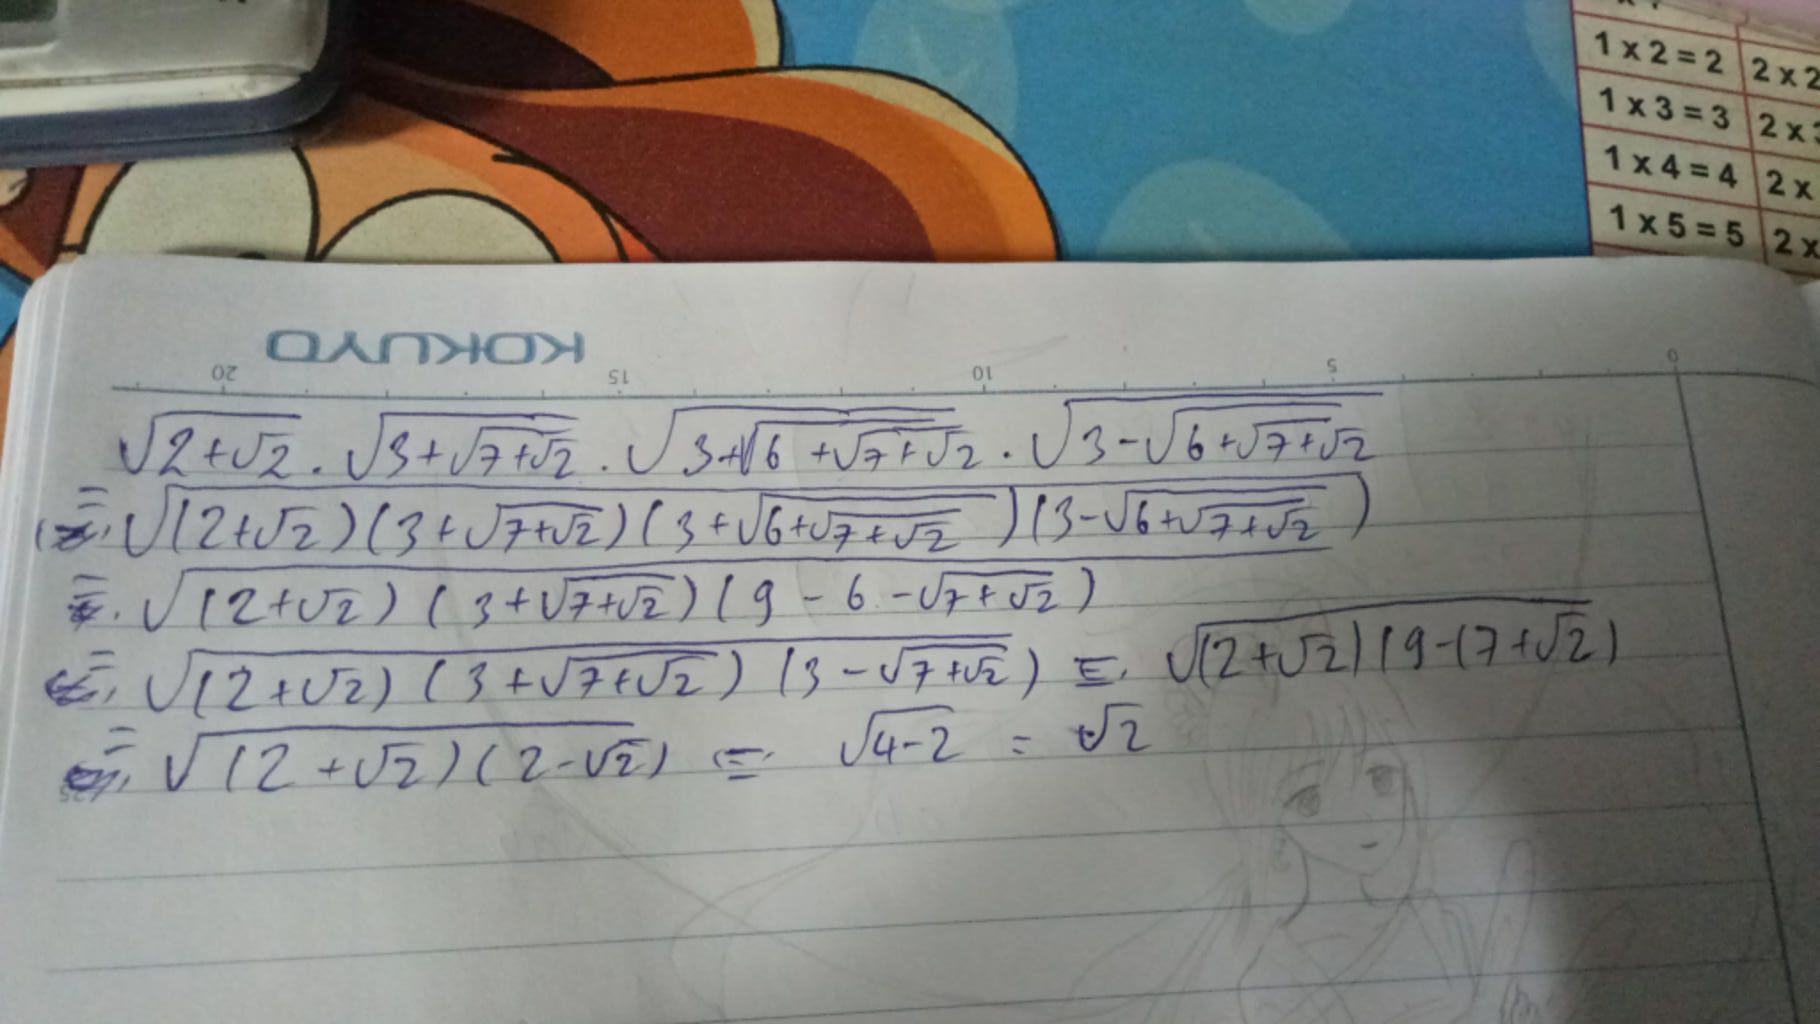 1 x 2 = 2 2 x 2
1 x 3 = 3 2 x 3
1 x 4 = 4 2 x
1 x 5 = 5 2 x
KOKUYO
20 15 10 5 0
√(2+√2) . √(3+√(7+√2)) . √(3+√(6+√(7+√2))) . √(3-√(6+√(7+√2)))
= √((2+√2)(3+√(7+√2))(3+√(6+√(7+√2)))(3-√(6+√(7+√2))))
= √((2+√2)(3+√(7+√2))(9-6-√(7+√2)))
= √((2+√2)(3+√(7+√2))(3-√(7+√2))) = √((2+√2)(9-(7+√2))
= √((2+√2)(2-√2)) = √(4-2) = √2
25